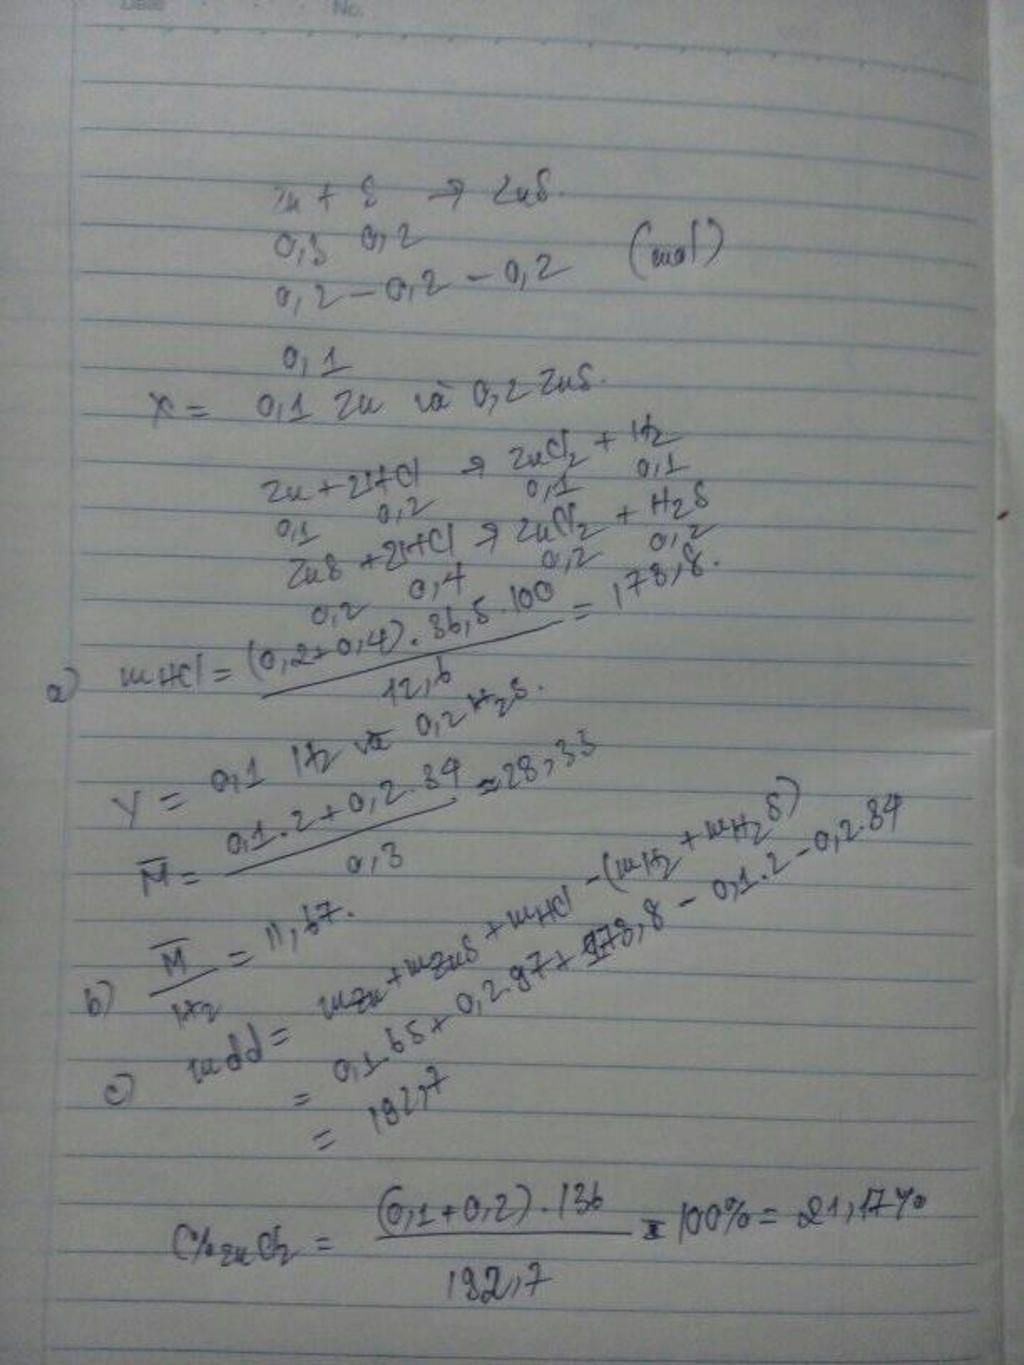 Date No.
Zn + S → ZnS.
0,3 0,2
0,2 - 0,2 - 0,2 (mol)
0,1
X = 0,1 Zn và 0,2 ZnS.
Zn + 2HCl → ZnCl2 + H2
0,1 0,2 0,1 0,1
ZnS + 2HCl → ZnCl2 + H2S
0,2 0,4 0,2 0,2
a) mHCl = (0,2+0,4).36,5.100 / 12,6 = 173,8.
Y = 0,1 H2 và 0,2 H2S.
M̅ = 0,1.2 + 0,2.34 / 0,3 = 23,33
b) M̅ / H2 = 11,67.
c) mdd = mZn + mZnS + mHCl - (mH2 + mH2S)
= 0,1.65 + 0,2.97 + 173,8 - 0,1.2 - 0,2.34
= 192,7
C% ZnCl2 = (0,1+0,2).136 / 192,7 x 100% = 21,17%